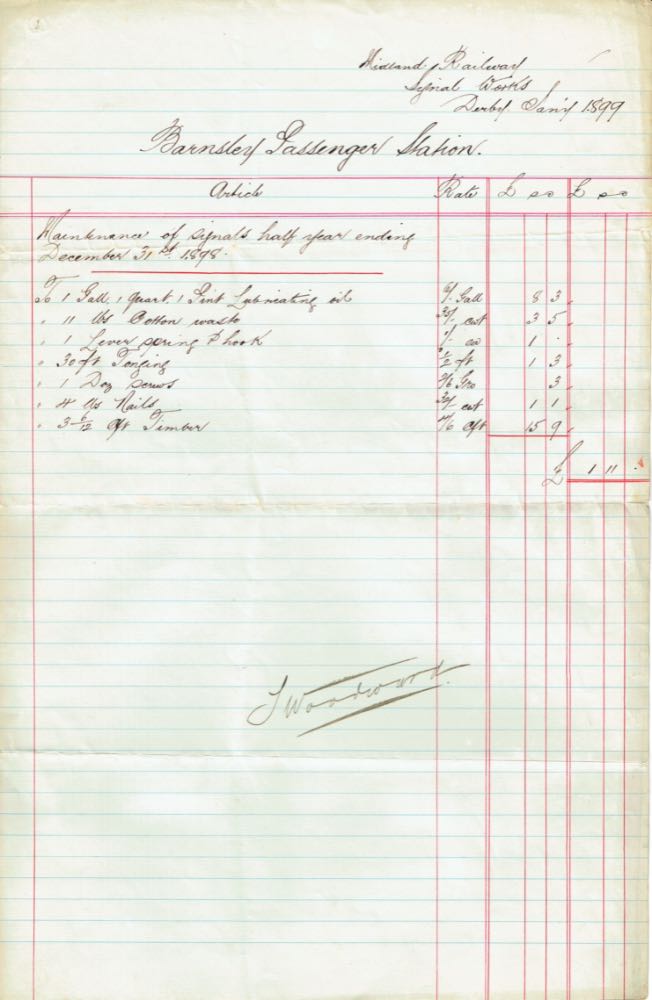 Midland Railway
Signal Works
Derby Jan'y 1899
Barnsley Passenger Station.
Article Rate £ s d £ s d
Maintenance of signals half year ending
December 31st. 1898.
To 1 Gall. 1 quart. 1 Pint Lubricating oil 6/- Gall 8 3
" 11 lbs Cotton waste cwt 3 5
" 1 Lever spring & hook 1/- ea 1 -
" 30 ft 1/2 ft 1 3
" 1 Doz screws 2/6 Gro 3
" 4 lbs Nails cwt 1 1
" 3 6/12 cft Timber 4/6 cft 15 9
£ 1 11 -
J Woodward.